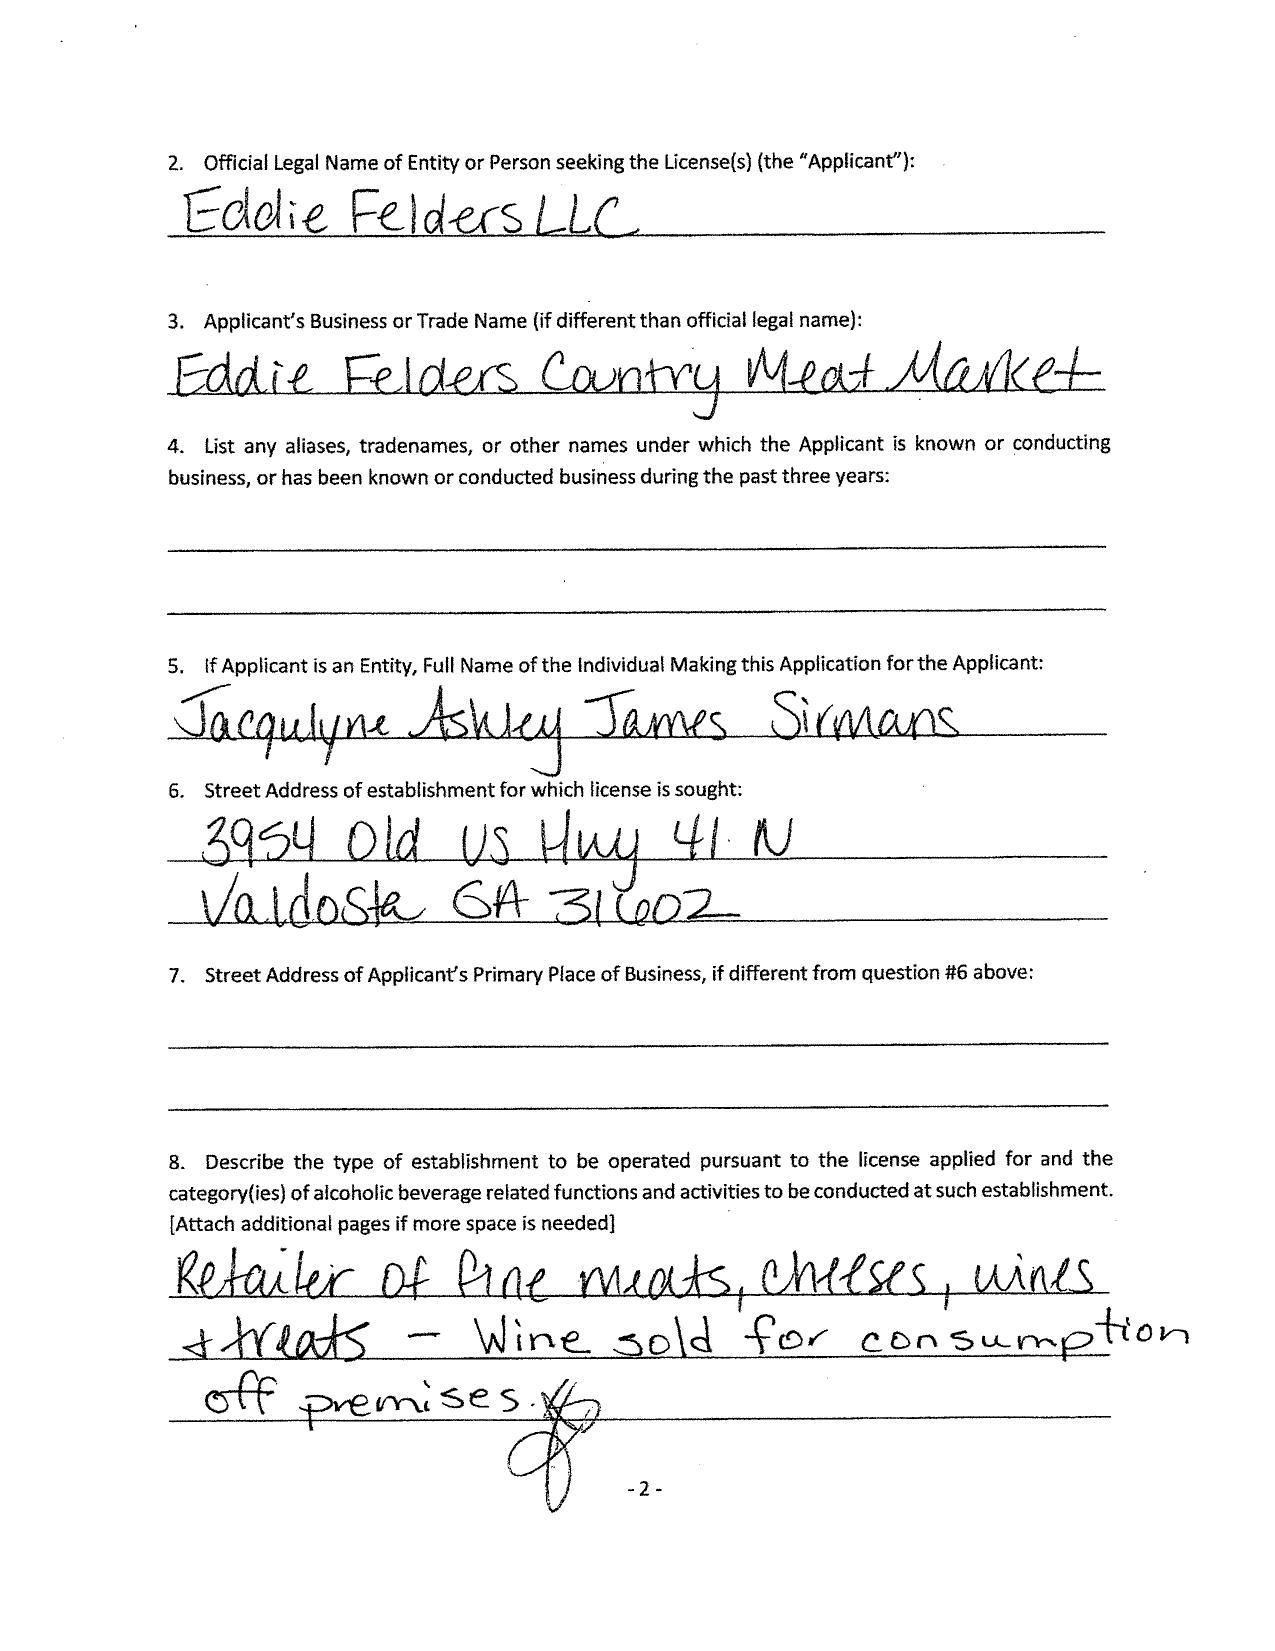 2. Official Legal Name of Entity or Person seeking the License(s) (the “Applicant”):
Eddie Felders LLC
3. Applicant's Business or Trade Name (if different than official legal name):
Eddie Felders Country Meat Market
4. List any aliases, tradenames, or other names under which the Applicant is known or conducting
business, or has been known or conducted business during the past three years:
5. If Applicant is an Entity, Full Name of the Individual Making this Application for the Applicant:
Jacqulyne Ashley James Sirmans
6. Street Address of establishment for which license is sought:
3954 Old US Hwy 41 N
Valdosta GA 31602
7. Street Address of Applicant's Primary Place of Business, if different from question #6 above:
8. Describe the type of establishment to be operated pursuant to the license applied for and the
category(ies) of alcoholic beverage related functions and activities to be conducted at such establishment.
[Attach additional pages if more space is needed]
Retailer of fine meats, cheeses, wines
+ treats – Wine sold for consumption
off premises.
- 2 -